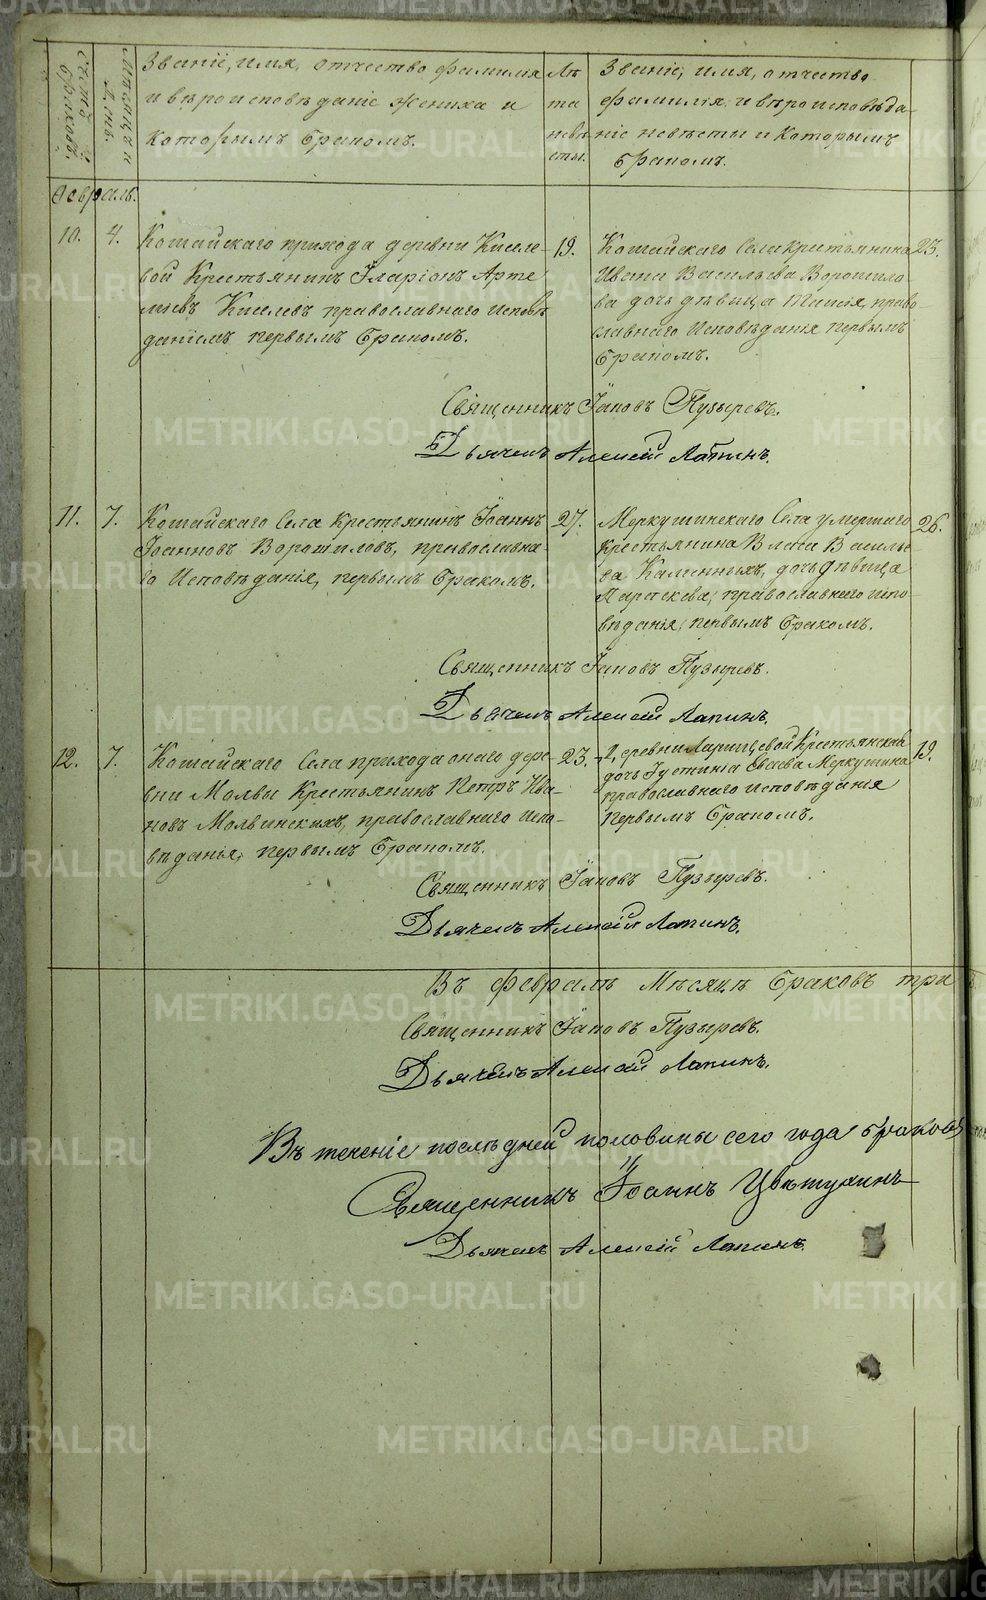 Счетъ браковъ.
Мѣсяцъ и день.
Званіе, имя, отчество фамилія
и вѣроисповѣданіе жениха и
которымъ бракомъ.
Лѣ
та
невѣ
сты.
Званіе, имя, отчество
фамилія, и вѣроисповѣда-
ніе невѣсты и которымъ
бракомъ.
Февраль.
10. 4. Кошайскаго прихода деревни Киселе-
вой Крестьянинъ Иларіонъ Арте
мьевъ Киселевъ православнаго исповѣ
даніемъ первымъ бракомъ.
19.
Кошайскаго Села крестьянина
Ивана Васильева Ворошило
ва дочь дѣвица Таисія, право
славнаго Исповѣданія первымъ
бракомъ.
23.
Священникъ Іаковъ Пузыревъ.
Дьячекъ Алексѣй Лапинъ.
11. 7. Кошайскаго Села крестьянинъ Іоаннъ
Іоанновъ Ворошиловъ, православна-
го Исповѣданія, первымъ бракомъ.
27.
Меркушинскаго Села умершаго
крестьянина Власа Василье
ва Каменныхъ, дочь дѣвица
Параскева, православнаго испо-
вѣданія, первымъ бракомъ.
26.
Священникъ Іаковъ Пузыревъ.
Дьячекъ Алексѣй Лапинъ.
12. 7. Кошайскаго Села прихода онаго дере-
вни Молвы Крестьянинъ Петръ Ива-
новъ Молвинскихъ, православнаго испо-
вѣданія, первымъ бракомъ.
23.
Деревни Ларищевой Крестьянская
дочь Іустинія Евсева Меркушина
православнаго исповѣданія
первымъ бракомъ.
19.
Священникъ Іаковъ Пузыревъ.
Дьячекъ Алексѣй Лапинъ.
Въ февралѣ Мѣсяцѣ браковъ три
Священникъ Іаковъ Пузыревъ.
Дьячекъ Алексѣй Лапинъ.
Въ теченіе послѣдней половины сего года браковъ
Священникъ Іоаннъ Цвѣтухинъ
Дьячекъ Алексѣй Лапинъ.
METRIKI.GASO-URAL.RU